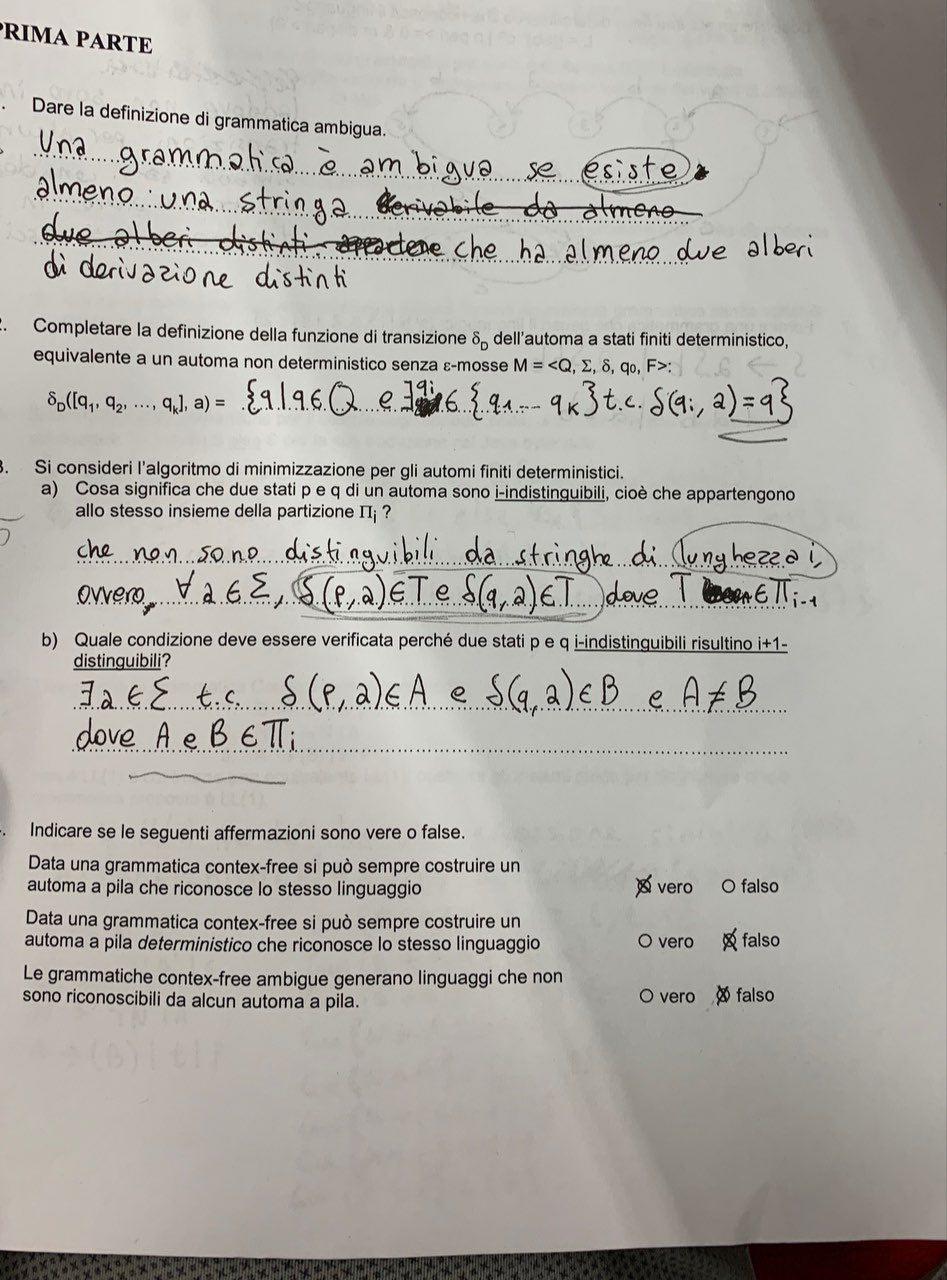 PRIMA PARTE
. Dare la definizione di grammatica ambigua.
Una grammatica è ambigua se esiste
almeno una stringa derivabile da almeno
due alberi distinti, che ha almeno due alberi
di derivazione distinti
2. Completare la definizione della funzione di transizione δD dell'automa a stati finiti deterministico,
equivalente a un automa non deterministico senza ε-mosse M = <Q, Σ, δ, q0, F>:
δD([q1, q2, ..., qk], a) = {q | q ∈ Q e ∃ qi ∈ {q1 -- qk} t.c. δ(qi, a) = q}
3. Si consideri l'algoritmo di minimizzazione per gli automi finiti deterministici.
a) Cosa significa che due stati p e q di un automa sono i-indistinguibili, cioè che appartengono
allo stesso insieme della partizione Πi ?
che non sono distinguibili da stringhe di lunghezza i,
ovvero, ∀ a ∈ Σ, δ(p, a) ∈ T e δ(q, a) ∈ T dove T ∈ Πi-1
b) Quale condizione deve essere verificata perché due stati p e q i-indistinguibili risultino i+1-
distinguibili?
∃ a ∈ Σ t.c. δ(p, a) ∈ A e δ(q, a) ∈ B e A ≠ B
dove A e B ∈ Πi
. Indicare se le seguenti affermazioni sono vere o false.
Data una grammatica contex-free si può sempre costruire un
automa a pila che riconosce lo stesso linguaggio vero falso
Data una grammatica contex-free si può sempre costruire un
automa a pila deterministico che riconosce lo stesso linguaggio vero falso
Le grammatiche contex-free ambigue generano linguaggi che non
sono riconoscibili da alcun automa a pila. vero falso